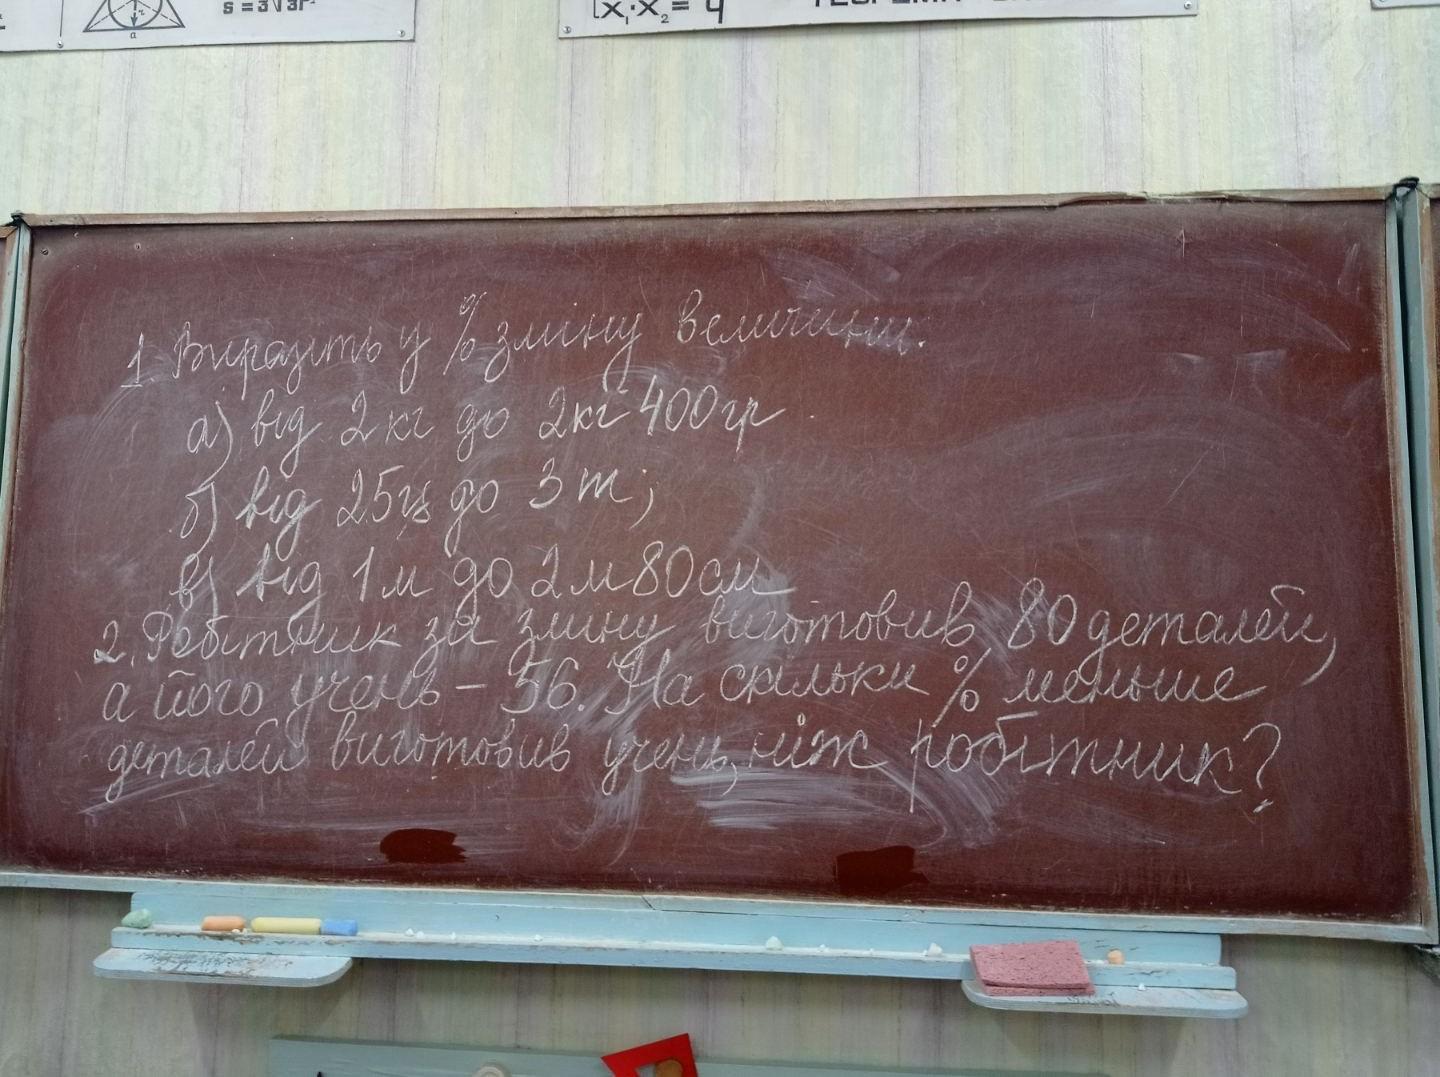 S = 3√3r²
a
x₁·x₂ = q
1. Виразіть у % зміну величини.
а) від 2кг до 2кг 400гр
б) від 25ц до 3т;
в) від 1м до 2м80см
2. Робітник за зміну виготовив 80 деталей,
а його учень – 56. На скільки % меньше
деталей виготовив учень, ніж робітник?